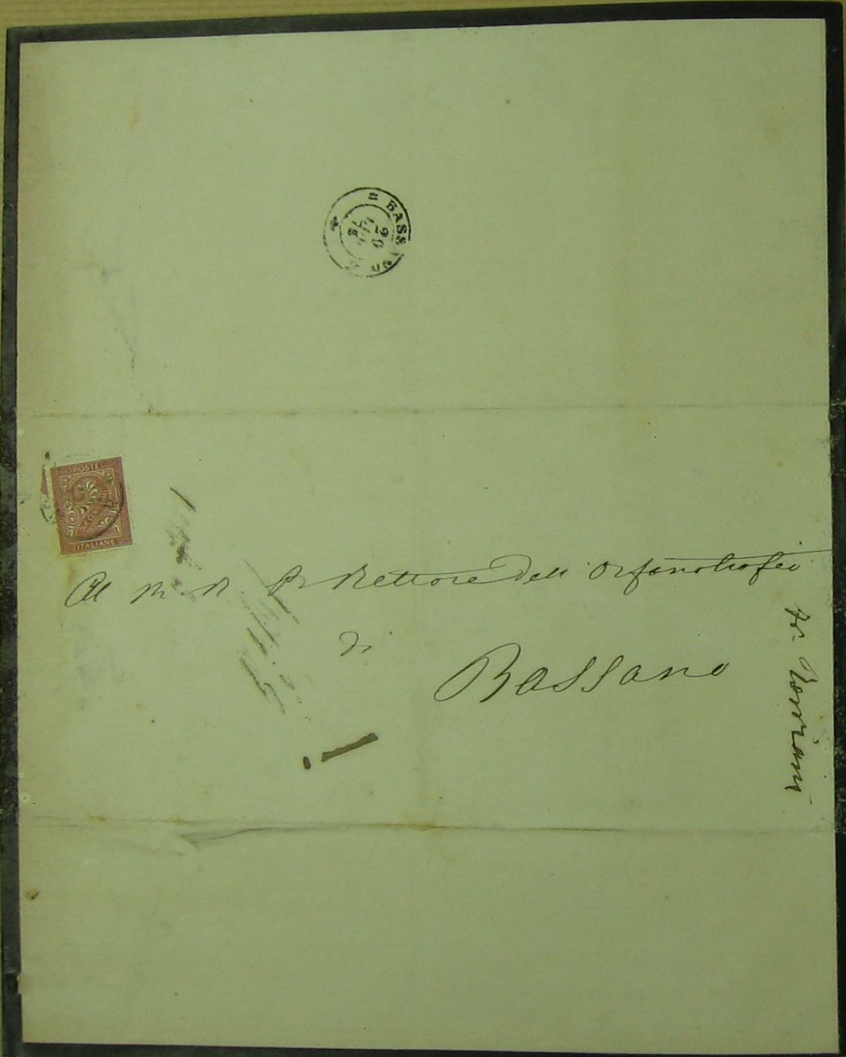 BASSANO
20
POSTE
ITALIANE
Al M R Pr Rettore dell' Orfanotrofio
di
Bassano